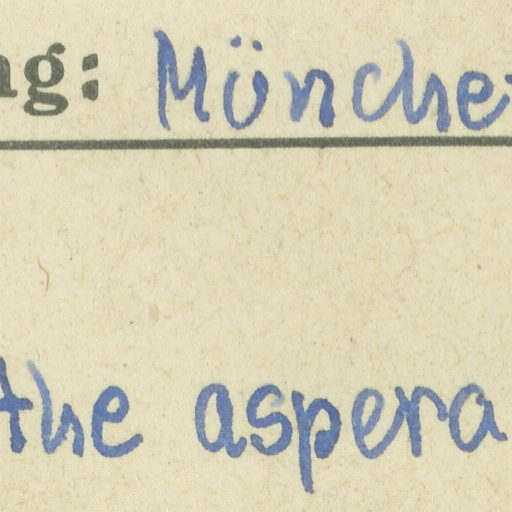 ng: Münche
the aspera